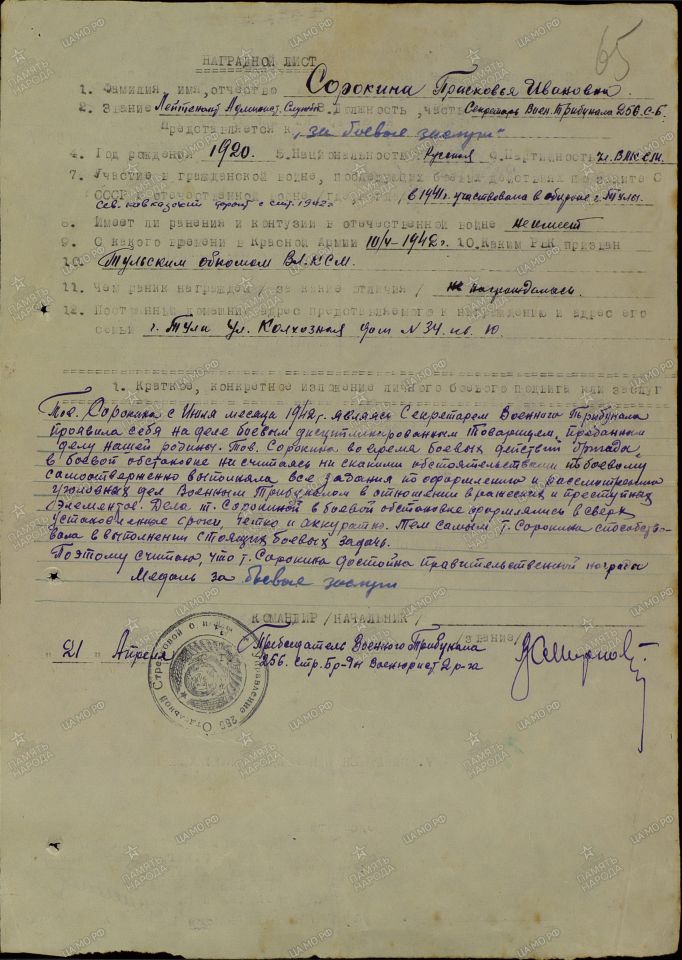 65
НАГРАДНОЙ ЛИСТ
1. Фамилия, имя, отчество Сорокина Прасковья Ивановна.
2. Звание Лейтенант Админист. Службы 3. Должность, часть Секретарь Воен. Трибунала 256. С-Б.
Представляется к „за боевые заслуги"
4. Год рождения 1920. 5. Национальность Русская 6. Партийность чл. ВЛКСМ.
7. Участие в гражданской войне, последующих боевых действиях по защите С
СССР и отечественной войне /где, когда/ в 1941г. участвовала в обороне г. Тулы
Сев. Кавказский фронт с 1942г
8. Имеет ли ранения и контузии в отечественной войне не имеет
9. С какого времени в Красной Армии 10/V-1942г. 10. Каким РВК призван
10. Тульским обкомом ВЛКСМ.
11. Чем ранее награжден /за какие отличия/ не награждалась.
12. Постоянный домашний адрес представляемого к награждению и адрес его
семьи г. Тула ул. Колхозная дом N 34. кв. 10.
1. Краткое, конкретное изложение личного боевого подвига или заслуг
Тов. Сорокина с Июля месяца 1942г. являясь Секретарем Военного Трибунала
проявила себя на деле боевым дисциплинированным товарищем, преданным
делу нашей родины. Тов. Сорокина во время боевых действий бригады
в боевой обстановке не считаясь ни с какими обстоятельствами по боевому
самоотверженно выполняла все задания по оформлению и рассмотрению
уголовных дел Военным Трибуналом в отношении вражеских и преступных
Элементов. Дела т. Сорокиной в боевой обстановке оформлялись в сверх
установленные сроки, четко и аккуратно. Тем самым т. Сорокина способство-
вала в выполнении стоящих боевых задач.
Поэтому считаю, что т. Сорокина достойна правительственной награды
Медаль за боевые заслуги
КОМАНДИР /НАЧАЛЬНИК/
/звание/
"21" Апреля
Председатель Военного Трибунала
256. Стр. Бр-ды Военюрист 2 р-га
Управление 256 Отдельной Стрелковой
ПАМЯТЬ НАРОДА
ЦАМО.РФ